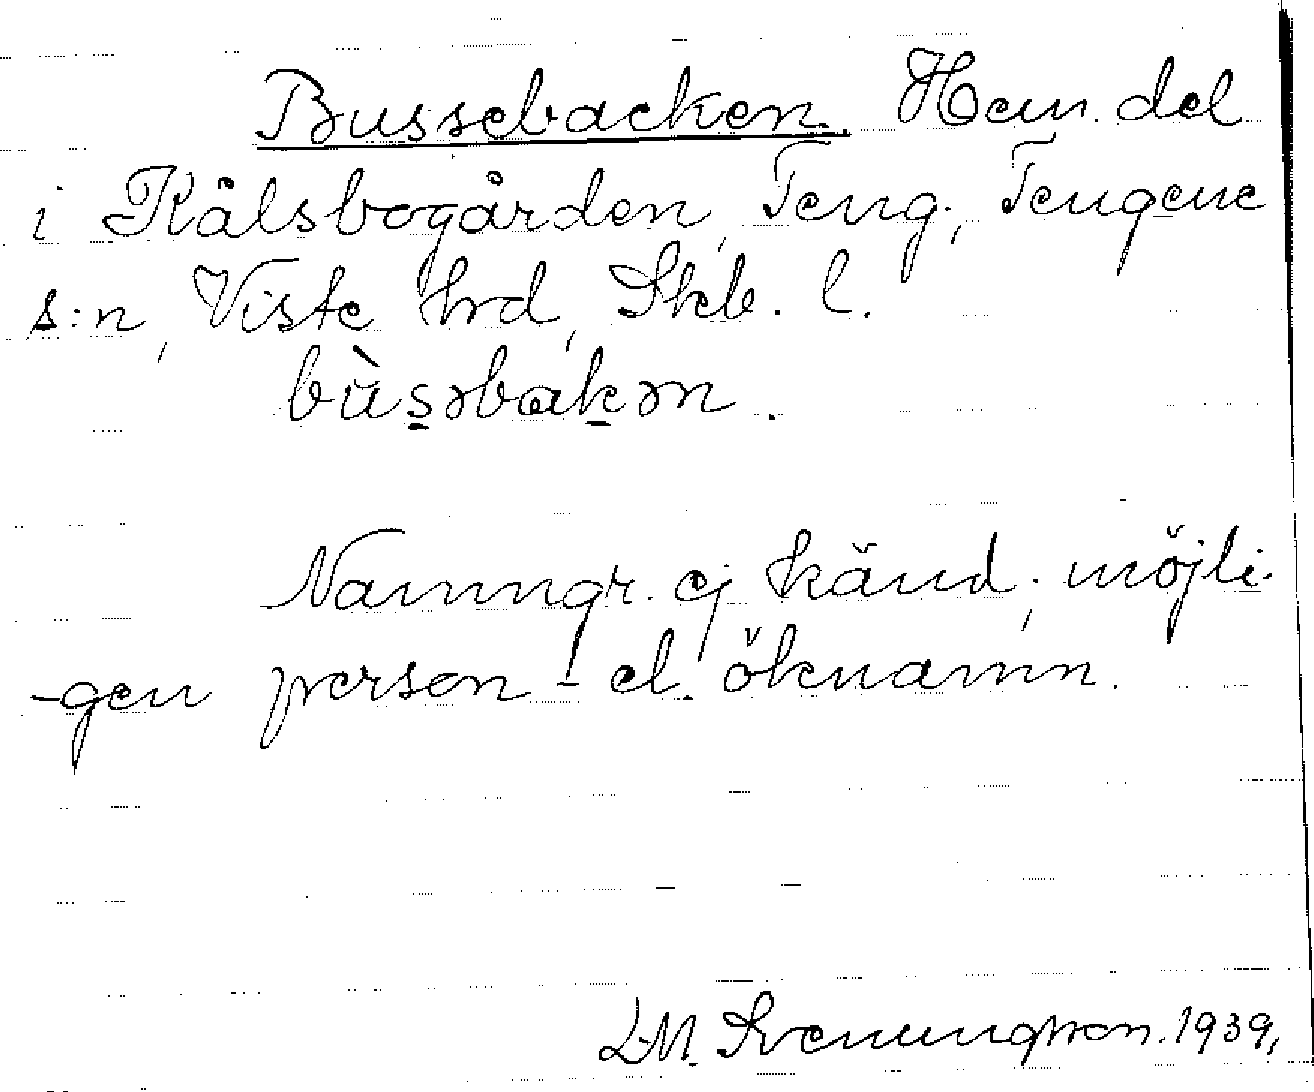 Bussebacken. Hem. del
i Kålsbogården, Teng, Tengene
s:n, Viste hrd, Skb. l.
bùs̱əbaḵən.
Namngr. ej känd, möjli-
-gen person- el. öknamn.
L.M. Svenungsson. 1939,